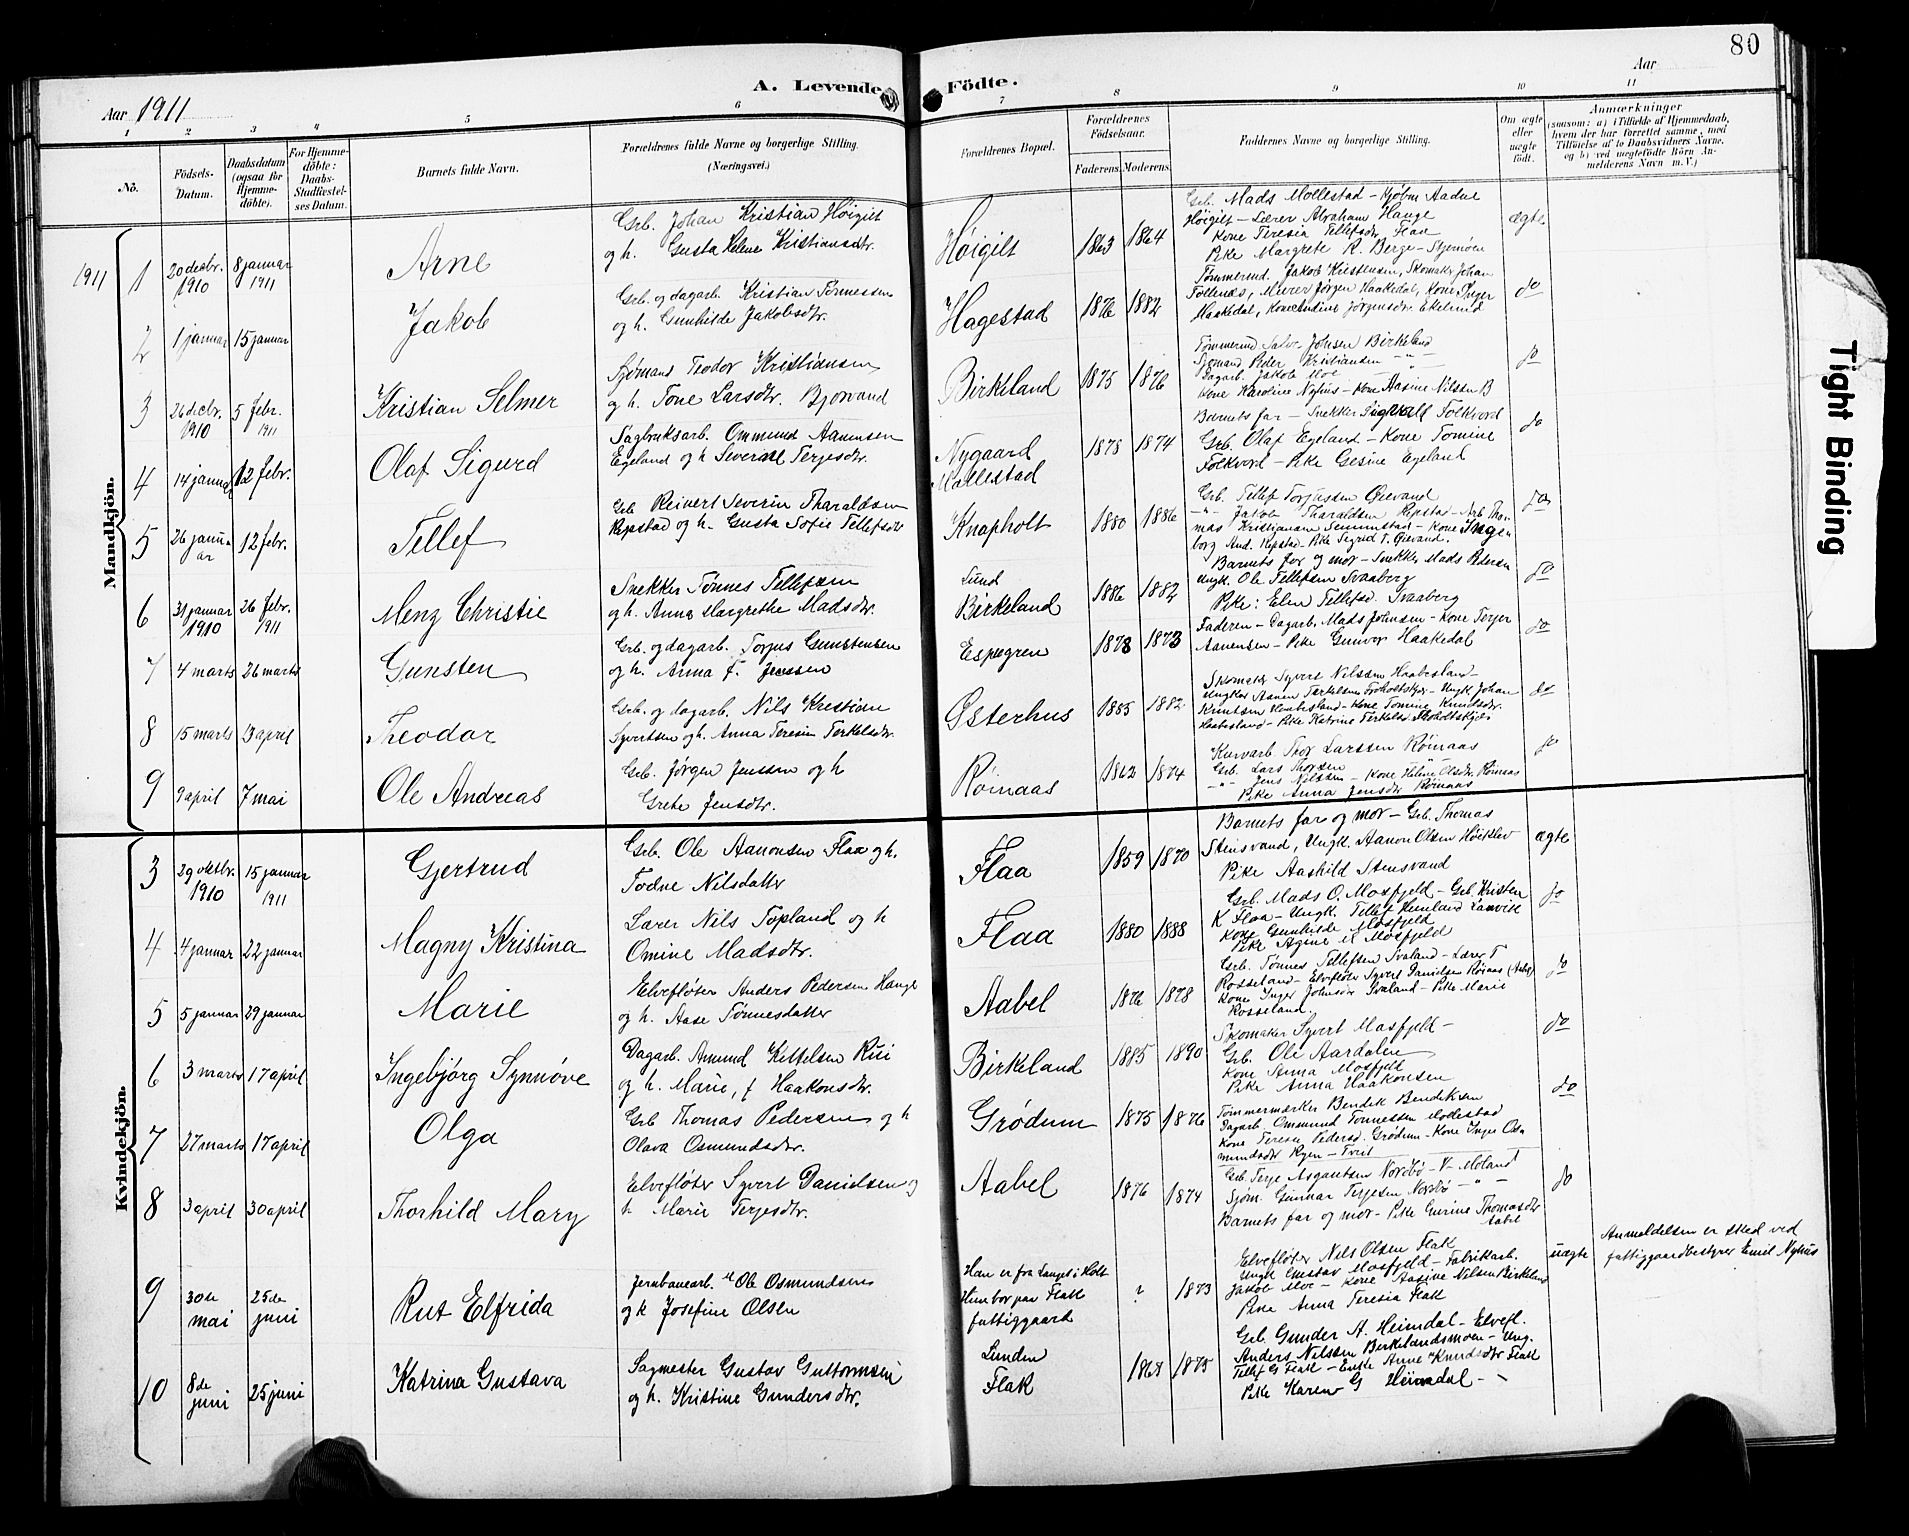 80
A. Levende Födte.
Aar 1911
Aar
1 2 3 4 5 6 7 8 9 10 11
No.
Födsels-
Datum.
Daabsdatum
(ogsaa for
Hjemme-
döbte).
For Hjemme-
döbte:
Daabs-
Stadfæstel-
ses Datum.
Barnets fulde Navn.
Forældrenes fulde Navne og borgerlige Stilling.
(Næringsvei.)
Forældrenes Bopæl.
Forældrenes
Födselsaar.
Faderens. Moderens.
Faddernes Navne og borgerlige Stilling.
Om ægte
eller
uægte
födt.
Anmærkninger
(saasom: a) i Tilfælde af Hjemmedaab,
hvem der har forrettet samme, med
Tilföielse af to Daabsvidners Navne,
og b) ved uægtefödte Börn An-
melderens Navn m. V.)
Mandkjön.
1911
1
20 decbr. 1910
8 januar 1911
Arne
Grb. Johan Kristian Høigilt
og h. Gusta Helene Kristiansdtr.
Høigilt
1863 1864
Grb. Mads Mollestad - Kjøbm Aadne
Høigilt - Lærer Abraham Hauge
Kone Teresia Tellefsdtr. Flaa
Pike Margrete R. Berge - Stjemoen
ægte
2
1 januar
15 januar
Jakob
Grb. og dagarb. Kristian Tønnessen
og h. Gunhilde Jakobsdtr.
Hagestad
1876 1882
Tømmermd. Jakob Kristensen, Skomaker Johan
Follenæs, Murer Jørgen Haakedal, Kone Inger
Haakedal, Kone Jørgensdtr. Ekelund
do
3
26 decbr. 1910
5 febr. 1911
Kristian Selmer
Sjømans Teodor Kristiansen
og h. Tone Larsdtr. Bjorvand
Birkeland
1875 1876
Tømmermd Salve Johnsen Birkeland
Sjømand Peder Kristiansen - " -
Dagarb. Jakob Moe - " -
Kone Karoline Nyhus - Kone Aasine Nilssen B
do
4
14 januar
12 febr.
Olaf Sigurd
Sagbruksarb. Ommund Aanensen
Egeland og h Severine Terjesdtr.
Nygaard
Mollestad
1878 1874
Barnets far - Snekker Sigvald Folkvord
Grb. Olaf Egeland - Kone Tomine
Folkvord - Pike Gesine Egeland
do
5
26 januar
12 febr.
Tellef
Grb Reinert Severin Tharaldsen
Repstad og h. Gusta Sofie Tellefsdtr
Knapholt
1880 1886
Grb. Tellef Torjussen Øievand
- " - Jakob Tharaldsen Repstad - Arb. Tho-
mas Kristiansen Senumstad - Kone Inge-
borg And. Repstad - Pike Sigrid T. Øievand.
do
6
31 januar 1910
26 febr. 1911
Menz Christie
Snekker Tønnes Tellefsen
og h. Anna Margrethe Madsdtr.
Lund
Birkeland
1886 1882
Barnets far og mor - Snekker Mads Pedersen
Ungk. Ole Tellefsen Svaaberg
Pike: Elen Tellefsd. Svaaberg
do
7
4 marts
26 marts
Gunsten
Grb. og dagarb. Torjus Gunstensen
og h. Anna F. Jenssen
Espegren
1873 1873
Faderen - Dagarb. Mads Johnsen - Kone Terjer
Aanensen - Pike Gunvor Haakedal
do
8
15 marts
23 april
Theodor
Grb. og dagarb. Nils Kristian
Syvertsen og h. Anna Teresia Terkelsdtr.
Østerhus
1885 1882
Skomaker Syvert Nilssen Haabesland -
Ungkar Aanen Terkelsen - Ungk Johan
Knutsen Haabesland - Kone Tomine Knudsdtr.
Haabesland - Pike Katrine Terkelsd
do
9
9 april
7 mai
Ole Andreas
Grb. Jørgen Jenssen og h
Grete Jensdtr.
Røinaas
1862 1874
Kurvarb. Thor Larssen Røinaas
Grb. Lars Thorsen
- " - Jens Nilssen - Kone Helene Olsdtr. Røinaas
Pike Anna Jensdtr Røinaas
do
Kvindekjön.
3
29 oktbr. 1910
15 januar 1911
Gjertrud
Grb. Ole Aanonsen Flaa og h.
Todne Nilsdatter
Flaa
1859 1870
Barnets far og mor - Grb. Thomas
Stensvand, Ungk. Aanon Olsen Høiklev
Pike Aashild Stensvand
ægte
4
4 januar
22 januar
Magny Kristina
Lærer Nils Topland og h
Omine Madsdtr.
Flaa
1880 1888
Grb. Mads O. Mosfjeld - Grb. Kristen
K Flaa - Ungk. Tellef Heimland Landvik
Kone Gunhilde Mosfjeld
Pike Agine Mosfjeld
do
5
5 januar
29 januar
Marie
Elvefløter Anders Pedersen Hauge
og h. Aase Tønnesdatter
Aabel
1876 1878
Grb. Tønnes Tellefsen Svaland - Lærer T
Rosseland - Elvefløter Syvert Danielsen Røinaas (Aabel)
Kone Inger Johnsdtr Svaland - Pike Marie
Rosseland.
do
6
3 marts
17 april
Ingebjørg Synnøve
Dagarb. Amund Kittelsen Risi
og h. Marie, f Haakonsdtr.
Birkeland
1885 1890
Skomaker Syvert Mosfjeld -
Grb. Ole Aardalen
Kone Anna Mosfjeld
Pike Anna Haakonsen
do
7
27 marts
17 april
Olga
Grb Thomas Pedersen og h
Olava Osmundsdtr.
Grødum
1875 1876
Tømmermærker Bendik Bendiksen
Dagarb. Ommund Tønnessen Mollestad
Kone Teresia Pedersd. Grødum - Kone Inge Os-
mundsdtr Ryen - Tveit
do
8
3 april
30 april
Thorhild Mary
Elvefløter Syvert Danielsen og
h Marie Terjesdtr.
Aabel
1876 1874
Grb. Terje Asgautsen Nordbø - V- Moland
Sjøm. Gunnar Terjesen Nordbø - " -
Barnets far og mor - Pike Gurine Thomasdtr
Aabel
do
9
30de mai
25de juni
Rut Elfrida
Jernbanearb. Ole Osmundsen
og k Josefine Olsen
Han er fra Langet i Holt
Hun bor paa Flak
fattiggaard
? 1873
Elvefløter Nils Olsen Flak
Ungk Gustav Mosfjeld - Fabrikarb.
Jakob Moe - Kone Aasine Nilsen Birkeland
Pike Anna Teresia Flak
uægte
Anmeldelsen er sked ved
fattiggaardbestyrer Emil Nyhus
10
8de juni
25 juni
Katrina Gustava
Sagmester Gustav Guttormsen
og h. Kristine Gundersdtr.
Lunden
Flak
1868 1875
Grb. Gunder A. Heimdal - Elvefl.
Anders Nilssen Birkelandsmoen - Ung.
Tellef G Flak - Enke Anne Knudsdtr Flak
Pike Karen G Heimdal -
Tight Binding